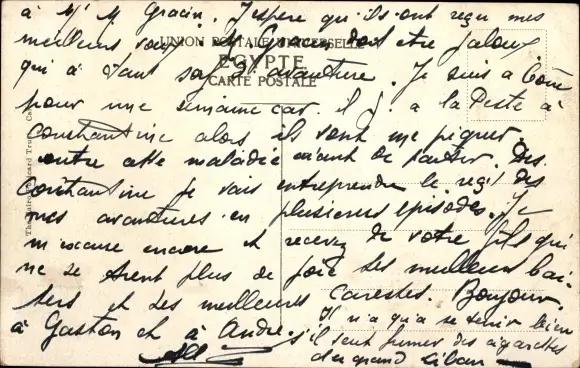 à Mr M Gracin. J'espère qu'ils ont reçu mes
meilleurs voeux. M Gracin doit etre jaloux
UNION POSTALE UNIVERSELLE
EGYPTE
CARTE POSTALE
qui à tant d'aventure. Je suis a Côme
pour une semaine car il y a la Peste à
Constantine alors ils vont me piquer
contre cette maladie avant de partir. Des
Constantine je vais entreprendre le reçit des
mes avantures en plusieurs episodes. Je
m'excuse encore et recevez de votre fils qui
ne se tient plus de joie ses meilleurs bai-
sers et ses meilleures caresses. Bonjour
à Gaston et à André.
Il n'a qu'a se tenir bien
s'il veut fumer des cigarettes
du grand Liban
The Cairo Postcard Trust